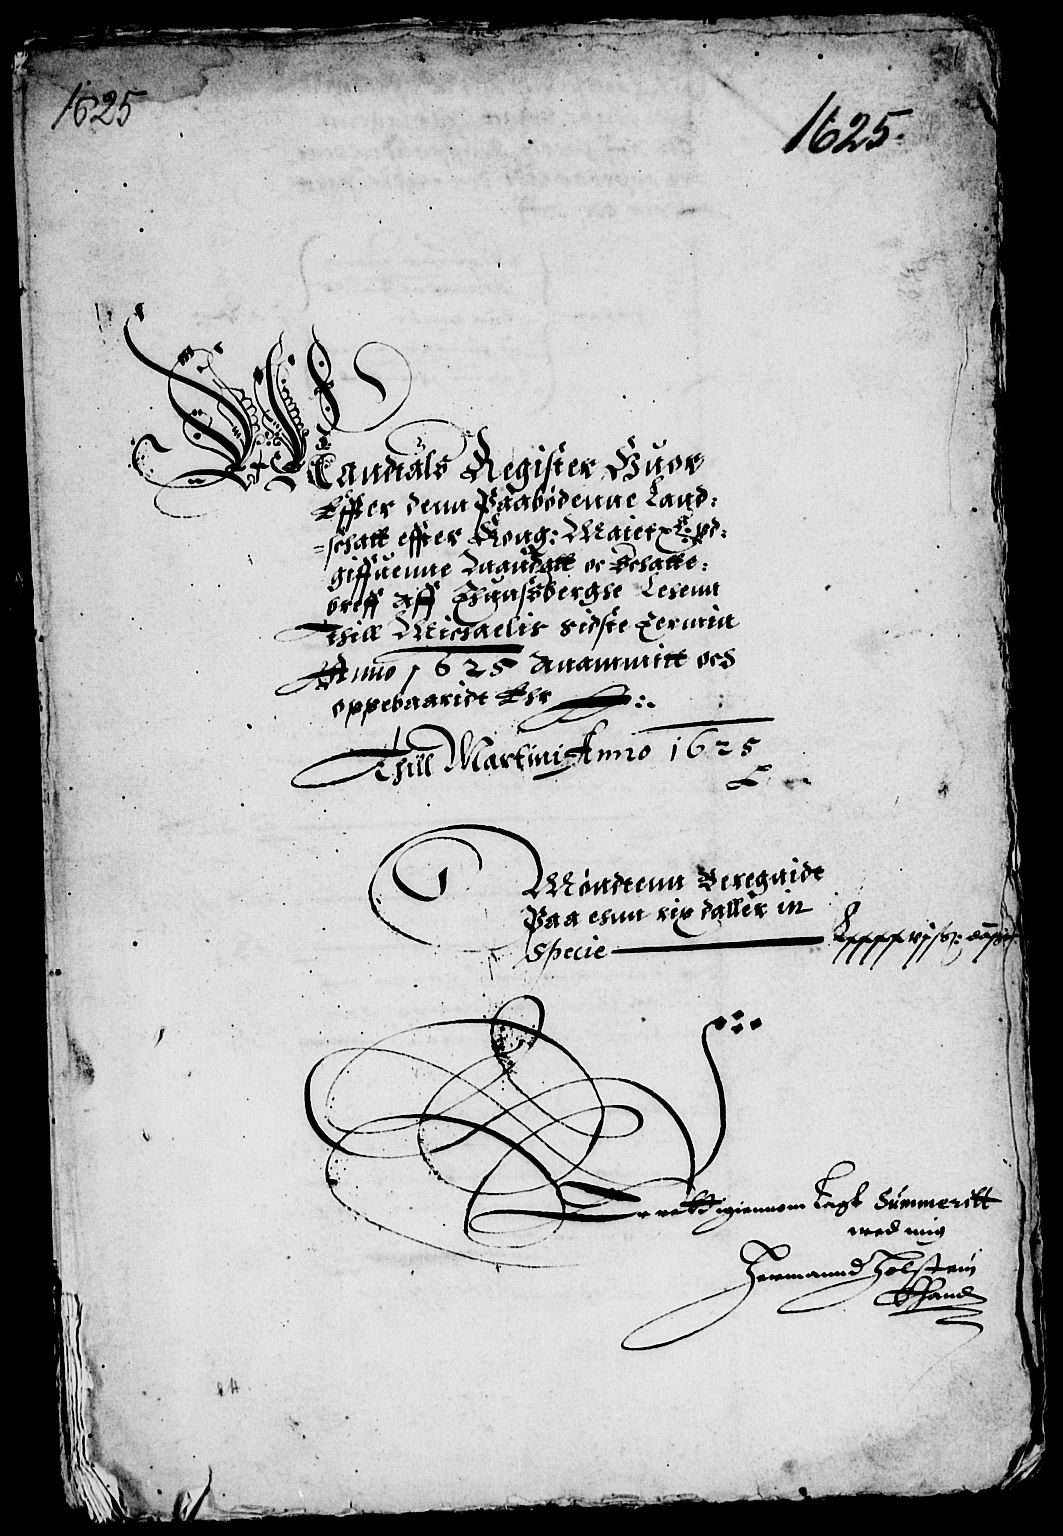 1625
1625.
Mandtals Register Huor
Effter denn Paabødenne Land:
schatt effter Kong: Maietz: Vd:
giffuenne Mandatt oc Schatte:
breff Aff Thunsberghs Lehenn
Thill Michaelis sidste Termin
Anno 1625 Anammitt och
oppebaaridt Ehr
Thill Martini Anno 1625
Møndtenn Beregnidt
Paa ehnn rix daller in
Specie
Er rettigiennom lagt Summeritt
med mig
Hermannd Holstein
Ehand